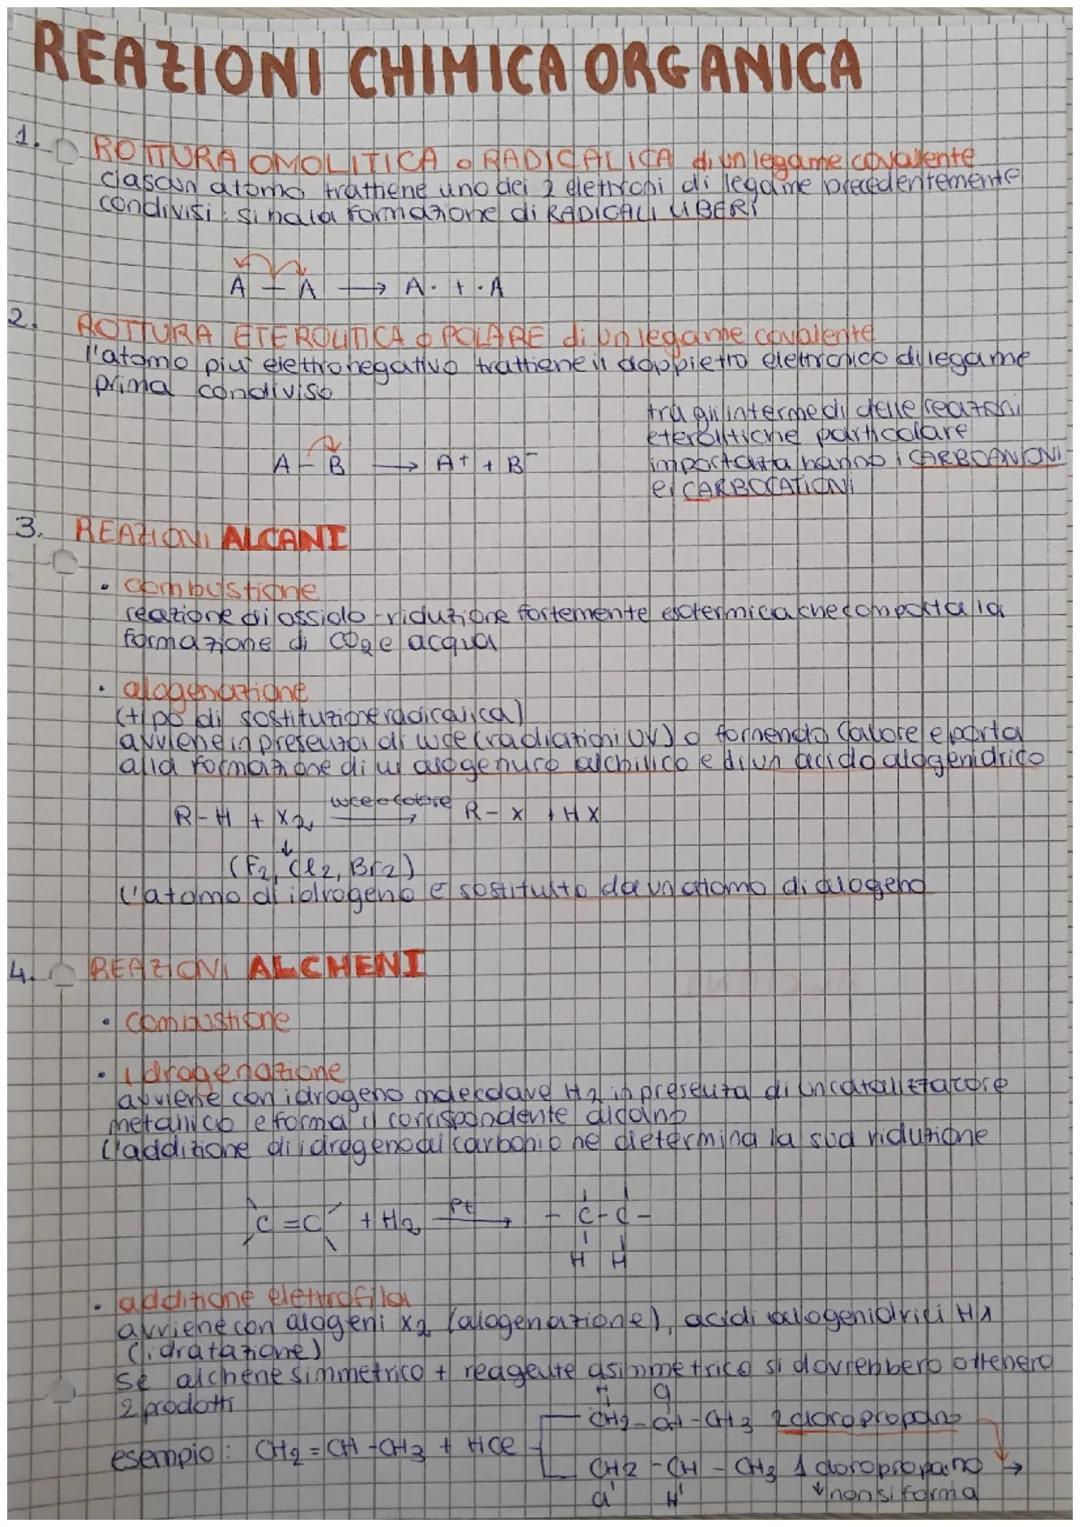 REAZIONI CHIMICA ORGANICA
1. ROTTURA OMOLITICA o RADICALICA di un legame covalente
ciascun atomo trattiene uno dei 2 elettroni di legame precedentemente
condivisi: si ha la formazione di RADICALI LIBERI
A - A → A· + ·A
2. ROTTURA ETEROLITICA o POLARE di un legame covalente
l'atomo più elettronegativo trattiene il doppietto elettronico di legame
prima condiviso
tra gli intermedi delle reazioni
eterolitiche particolare
importanza hanno i CARBOANIONI
e i CARBOCATIONI
A - B → A⁺ + B⁻
3. REAZIONI ALCANI
• combustione
reazione di ossido-riduzione fortemente esotermica che comporta la
formazione di CO₂ e acqua
• alogenazione
(tipo di sostituzione radicalica)
avviene in presenza di luce (radiazioni UV) o fornendo calore e porta
alla formazione di un alogenuro alchilico e di un acido alogenidrico
R-H + X₂ luce o calore → R-X + HX
↓
(F₂, Cl₂, Br₂)
L'atomo di idrogeno è sostituito da un atomo di alogeno
4. REAZIONI ALCHENI
• combustione
• idrogenazione
avviene con idrogeno molecolare H₂ in presenza di un catalizzatore
metallico e forma il corrispondente alcano
L'addizione di idrogeno al carbonio ne determina la sua riduzione
C=C + H₂ Pt → -C-C-
H H
• addizione elettrofila
avviene con alogeni X₂ (alogenazione), acidi alogenidrici
(idratazione)
se alchene simmetrico + reagente asimmetrico si dovrebbero ottenere
2 prodotti
H Cl
CH₂-CH-CH₃ 2 cloropropano
esempio: CH₂=CH-CH₃ + HCl
CH₂-CH-CH₃ 1 cloropropano →
Cl H ↓ non si forma